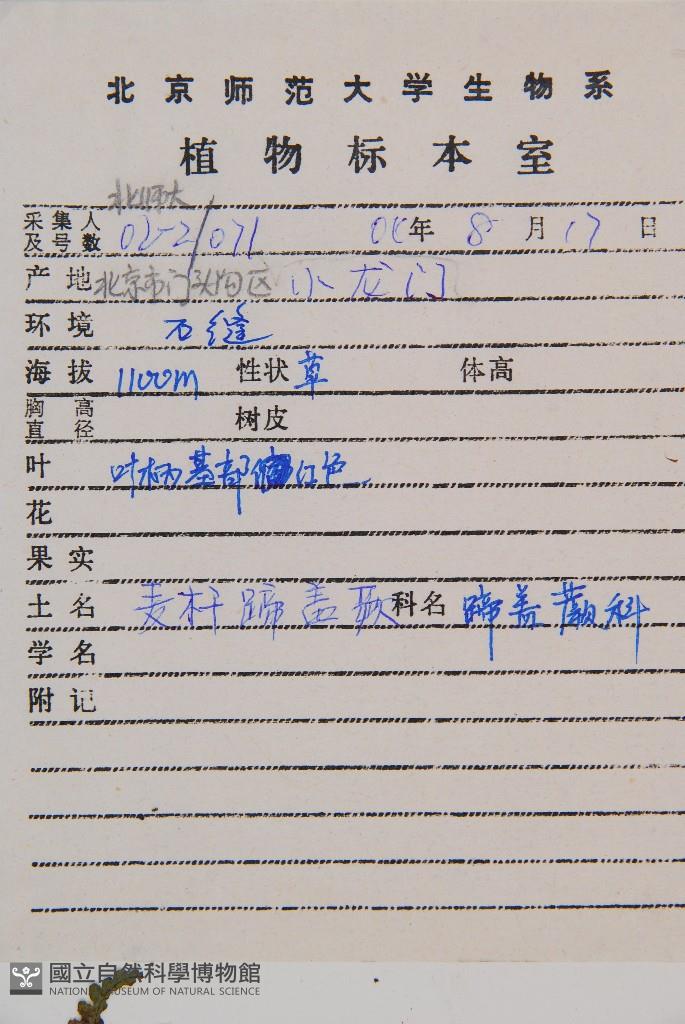 北京师范大学生物系
植物标本室
北师大
采集人及号数 02-2/071 年 8 月 17 日
产地 北京市门头沟区 小龙门
环境 石缝
海拔 1100m 性状 草 体高
胸高直径 树皮
叶 叶柄基部 红色
花
果实
土名 麦杆蹄盖蕨 科名 蹄盖蕨科
学名
附记
國立自然科學博物館
NATIONAL MUSEUM OF NATURAL SCIENCE